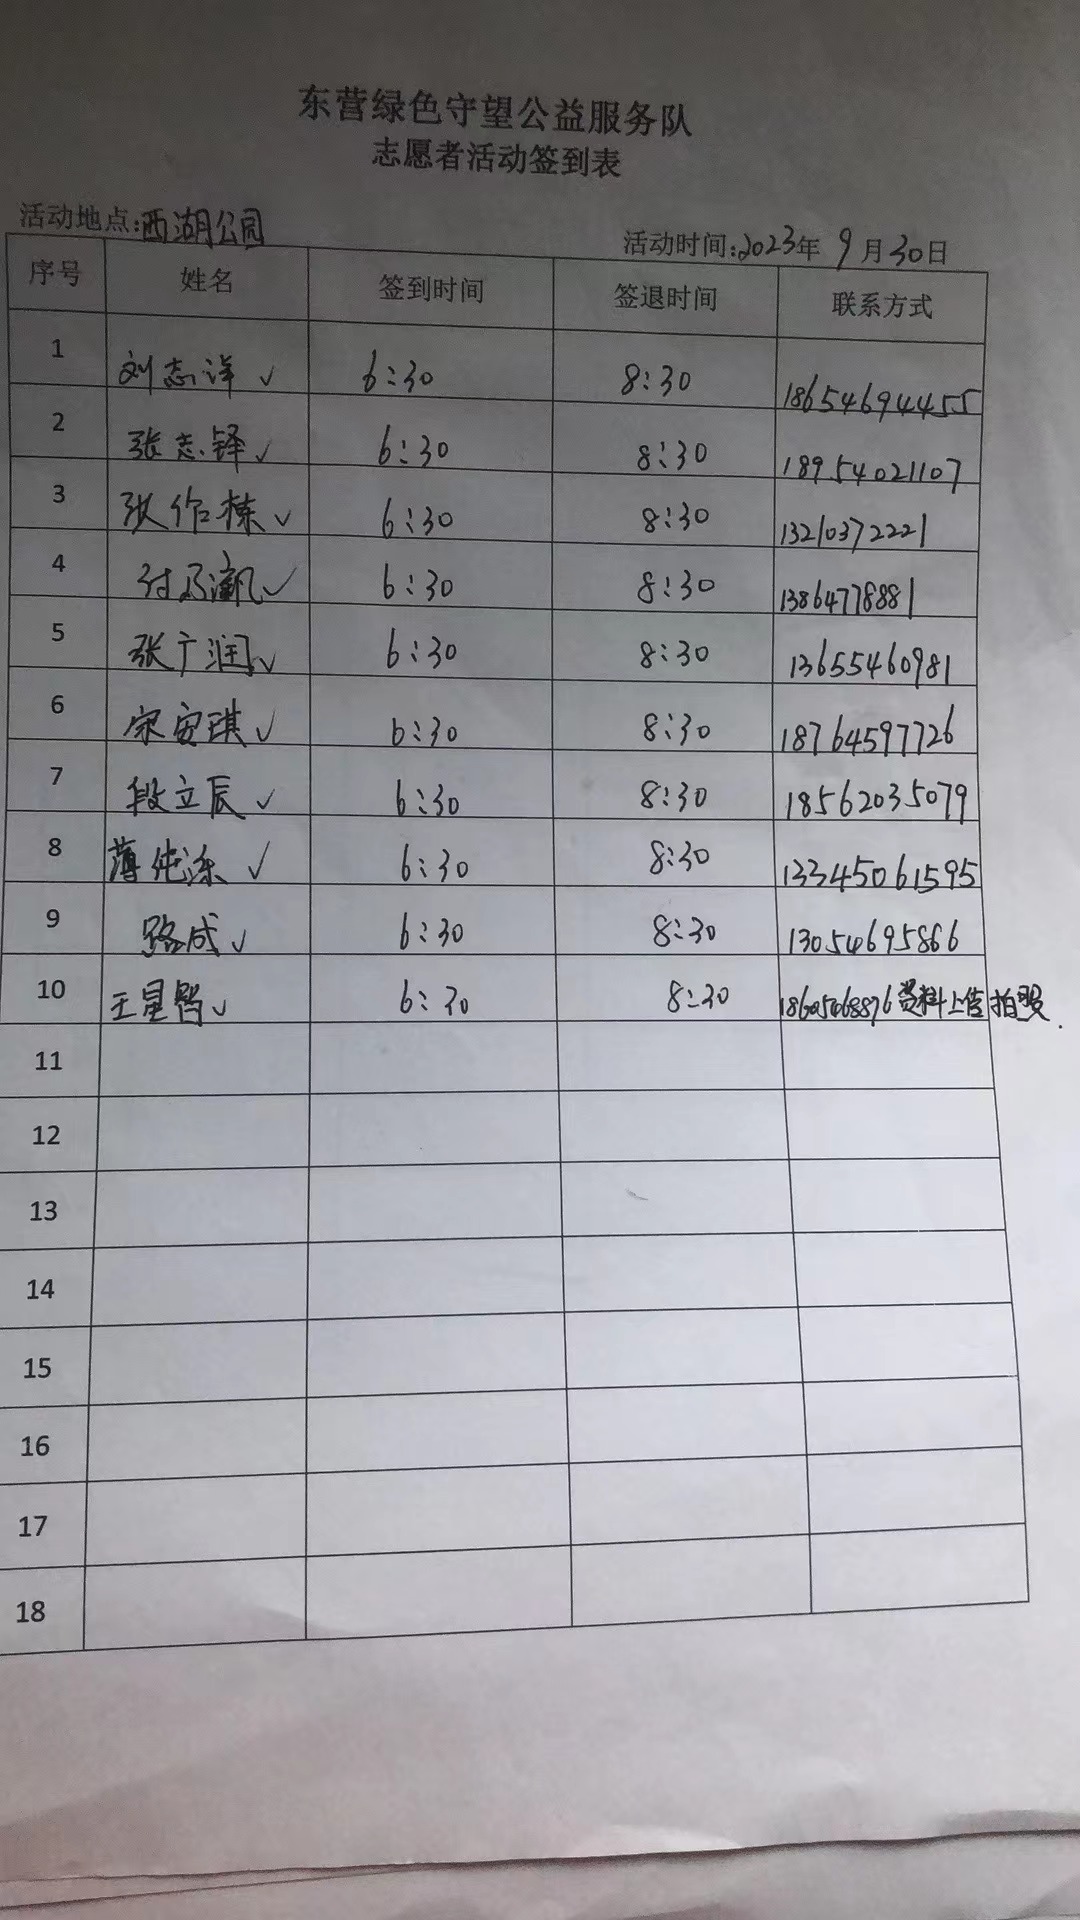 东营绿色守望公益服务队
志愿者活动签到表
活动地点:西湖公园 活动时间:2023年 9月30日
序号 姓名 签到时间 签退时间 联系方式
1 刘志洋 ✓ 6:30 8:30 18654694455
2 张志铎 ✓ 6:30 8:30 18954021107
3 张作栋 ✓ 6:30 8:30 13210372221
4 ✓ 6:30 8:30 13864778881
5 张广润 ✓ 6:30 8:30 13655460981
6 宋安琪 ✓ 6:30 8:30 18764597726
7 段立辰 ✓ 6:30 8:30 18562035079
8 薄纯 ✓ 6:30 8:30 13345061595
9 路成 ✓ 6:30 8:30 13054695866
10 王星智 ✓ 6:30 8:30 资料上传 拍照.
11
12
13
14
15
16
17
18